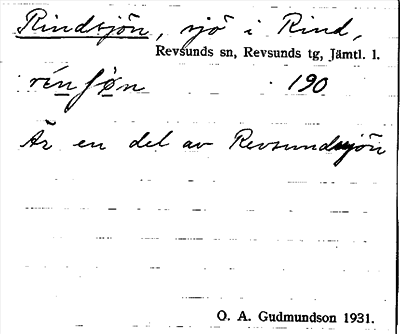 Rindsjön, sjö i Rind,
Revsunds sn, Revsunds tg, Jämtl. l.
rínʃøn 190
Är en del av Revsundssjön
O. A. Gudmundson 1931.